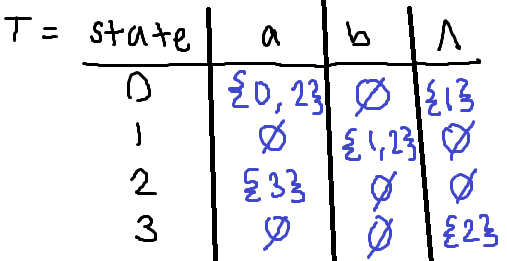 T = state a b Λ
0 {0, 2} ∅ {1}
1 ∅ {1,2} ∅
2 {3} ∅ ∅
3 ∅ ∅ {2}